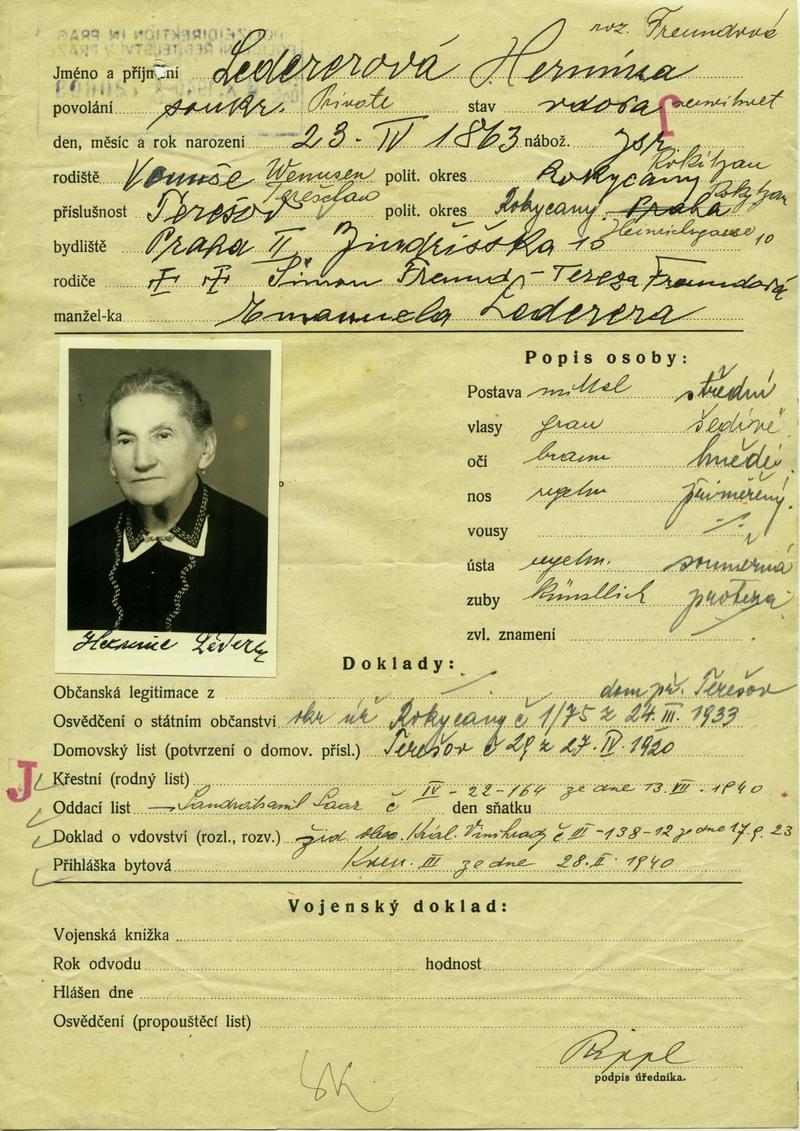 roz. Freundová
Jméno a příjmení Ledererová Hermína
povolání soukr. Private stav vdova verwitwet
den, měsíc a rok narození 23. IV 1863 nábož. isr
J
rodiště Wenussen polit. okres Rokycany Rokitzan
příslušnost Terešov polit. okres Rokycany. Praha
bydliště Praha II Jindřišská 10 Heinrichsgasse 10
rodiče Simon Freund - Tereza Freundová
manžel-ka Emanuela Lederera
Popis osoby:
Postava mittel střední
vlasy grau šedivé
oči braun hnědé
nos regelm přiměřený
vousy
ústa regelm. souměrná
zuby künstlich proteza
zvl. znamení
Hermine Lederer
Doklady:
Občanská legitimace z dom. př. Terešov
Osvědčení o státním občanství okr úř Rokycany č 1/75 z 24. III. 1933
Domovský list (potvrzení o domov. přísl.) Terešov č 29 z 27. IV. 1920
J
Křestní (rodný list)
Oddací list č IV - 22-164 ze dne 13. VII. 1940 den sňatku
Doklad o vdovství (rozl., rozv.) žid. Král. Vinohrady č III - 138-12 ze dne 17.9.23
Přihláška bytová III ze dne 28. II. 1940
Vojenský doklad:
Vojenská knížka
Rok odvodu hodnost
Hlášen dne
Osvědčení (propouštěcí list)
Rippl
podpis úředníka.